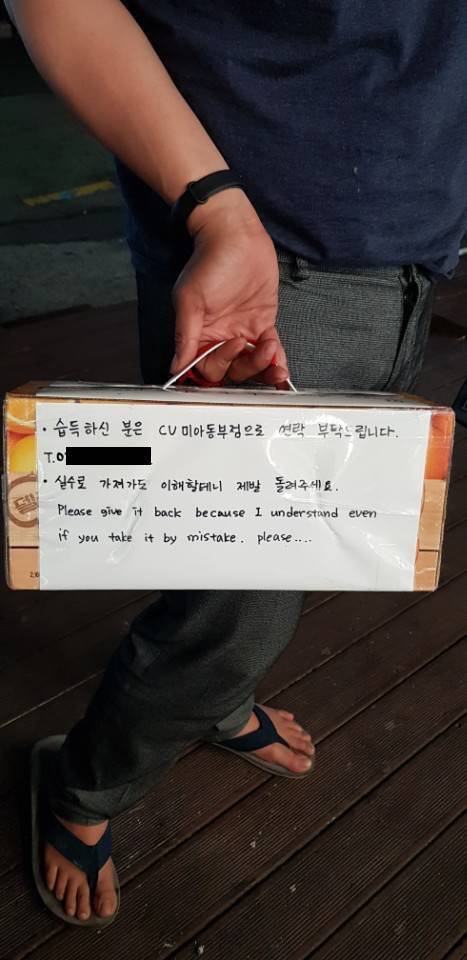 • 습득하신 분은 CU미아동부점으로 연락 부탁드립니다.
T.01
• 실수로 가져가도 이해할테니 제발 돌려주세요.
Please give it back because I understand even
if you take it by mistake. please....